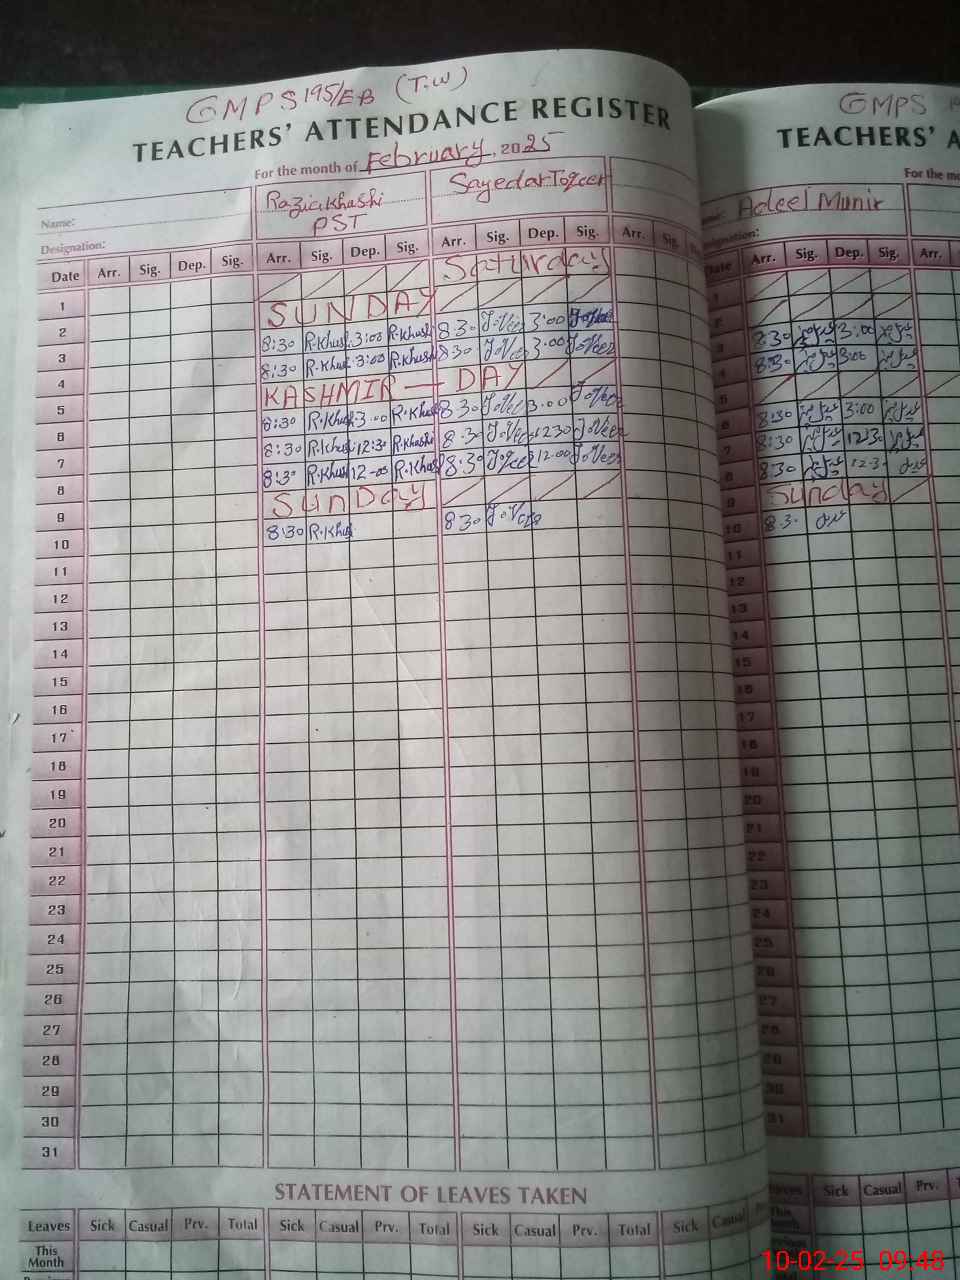 GMPS 195/EB (T.W)
TEACHERS' ATTENDANCE REGISTER
For the month of February, 2025
Name: Razia khashi Sayedar Toqeer
PST
Designation:
Date Arr. Sig. Dep. Sig. Arr. Sig. Dep. Sig. Arr. Sig. Dep. Sig. Arr. Sig. Dep.
1 Saturday
2 SUNDAY
3 8:30 R.Khush 3:00 R.Khush 8:30 3:00
4 8:30 R.Khush 3:00 R.Khush 8:30 3:00
5 KASHMIR — DAY
6 8:30 R.Khush 3:00 R.Khush 8:30 3:00
7 8:30 R.Khush 12:30 R.Khashi 8:30 12:30
8 8:30 R.Khush 12-00 R.Khush 8:30 12:00
9 SUNDay
10 8:30 R.Khush 8:30
11
12
13
14
15
16
17
18
19
20
21
22
23
24
25
26
27
28
29
30
31
STATEMENT OF LEAVES TAKEN
Leaves Sick Casual Prv. Total Sick Casual Prv. Total Sick Casual Prv. Total Sick Casual
This Month
GMPS
TEACHERS' A
For the mo
Adeel Munir
Designation:
Date Arr. Sig. Dep. Sig. Arr.
1
2
3 8:30 3:00
4 8:30 3:00
5
6 8:30 3:00
7 8:30 12:30
8 8:30 12:30
9 Sunday
10 8:30
11
12
13
14
15
16
17
18
19
20
21
22
23
24
25
26
27
28
29
30
31
Leaves Sick Casual Prv.
This Month
10-02-25 09:48